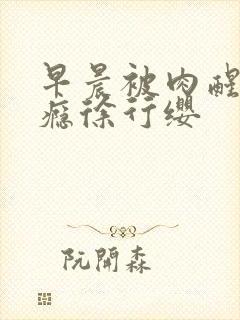 早晨被肉醒
瘾徐行缨
阮開森